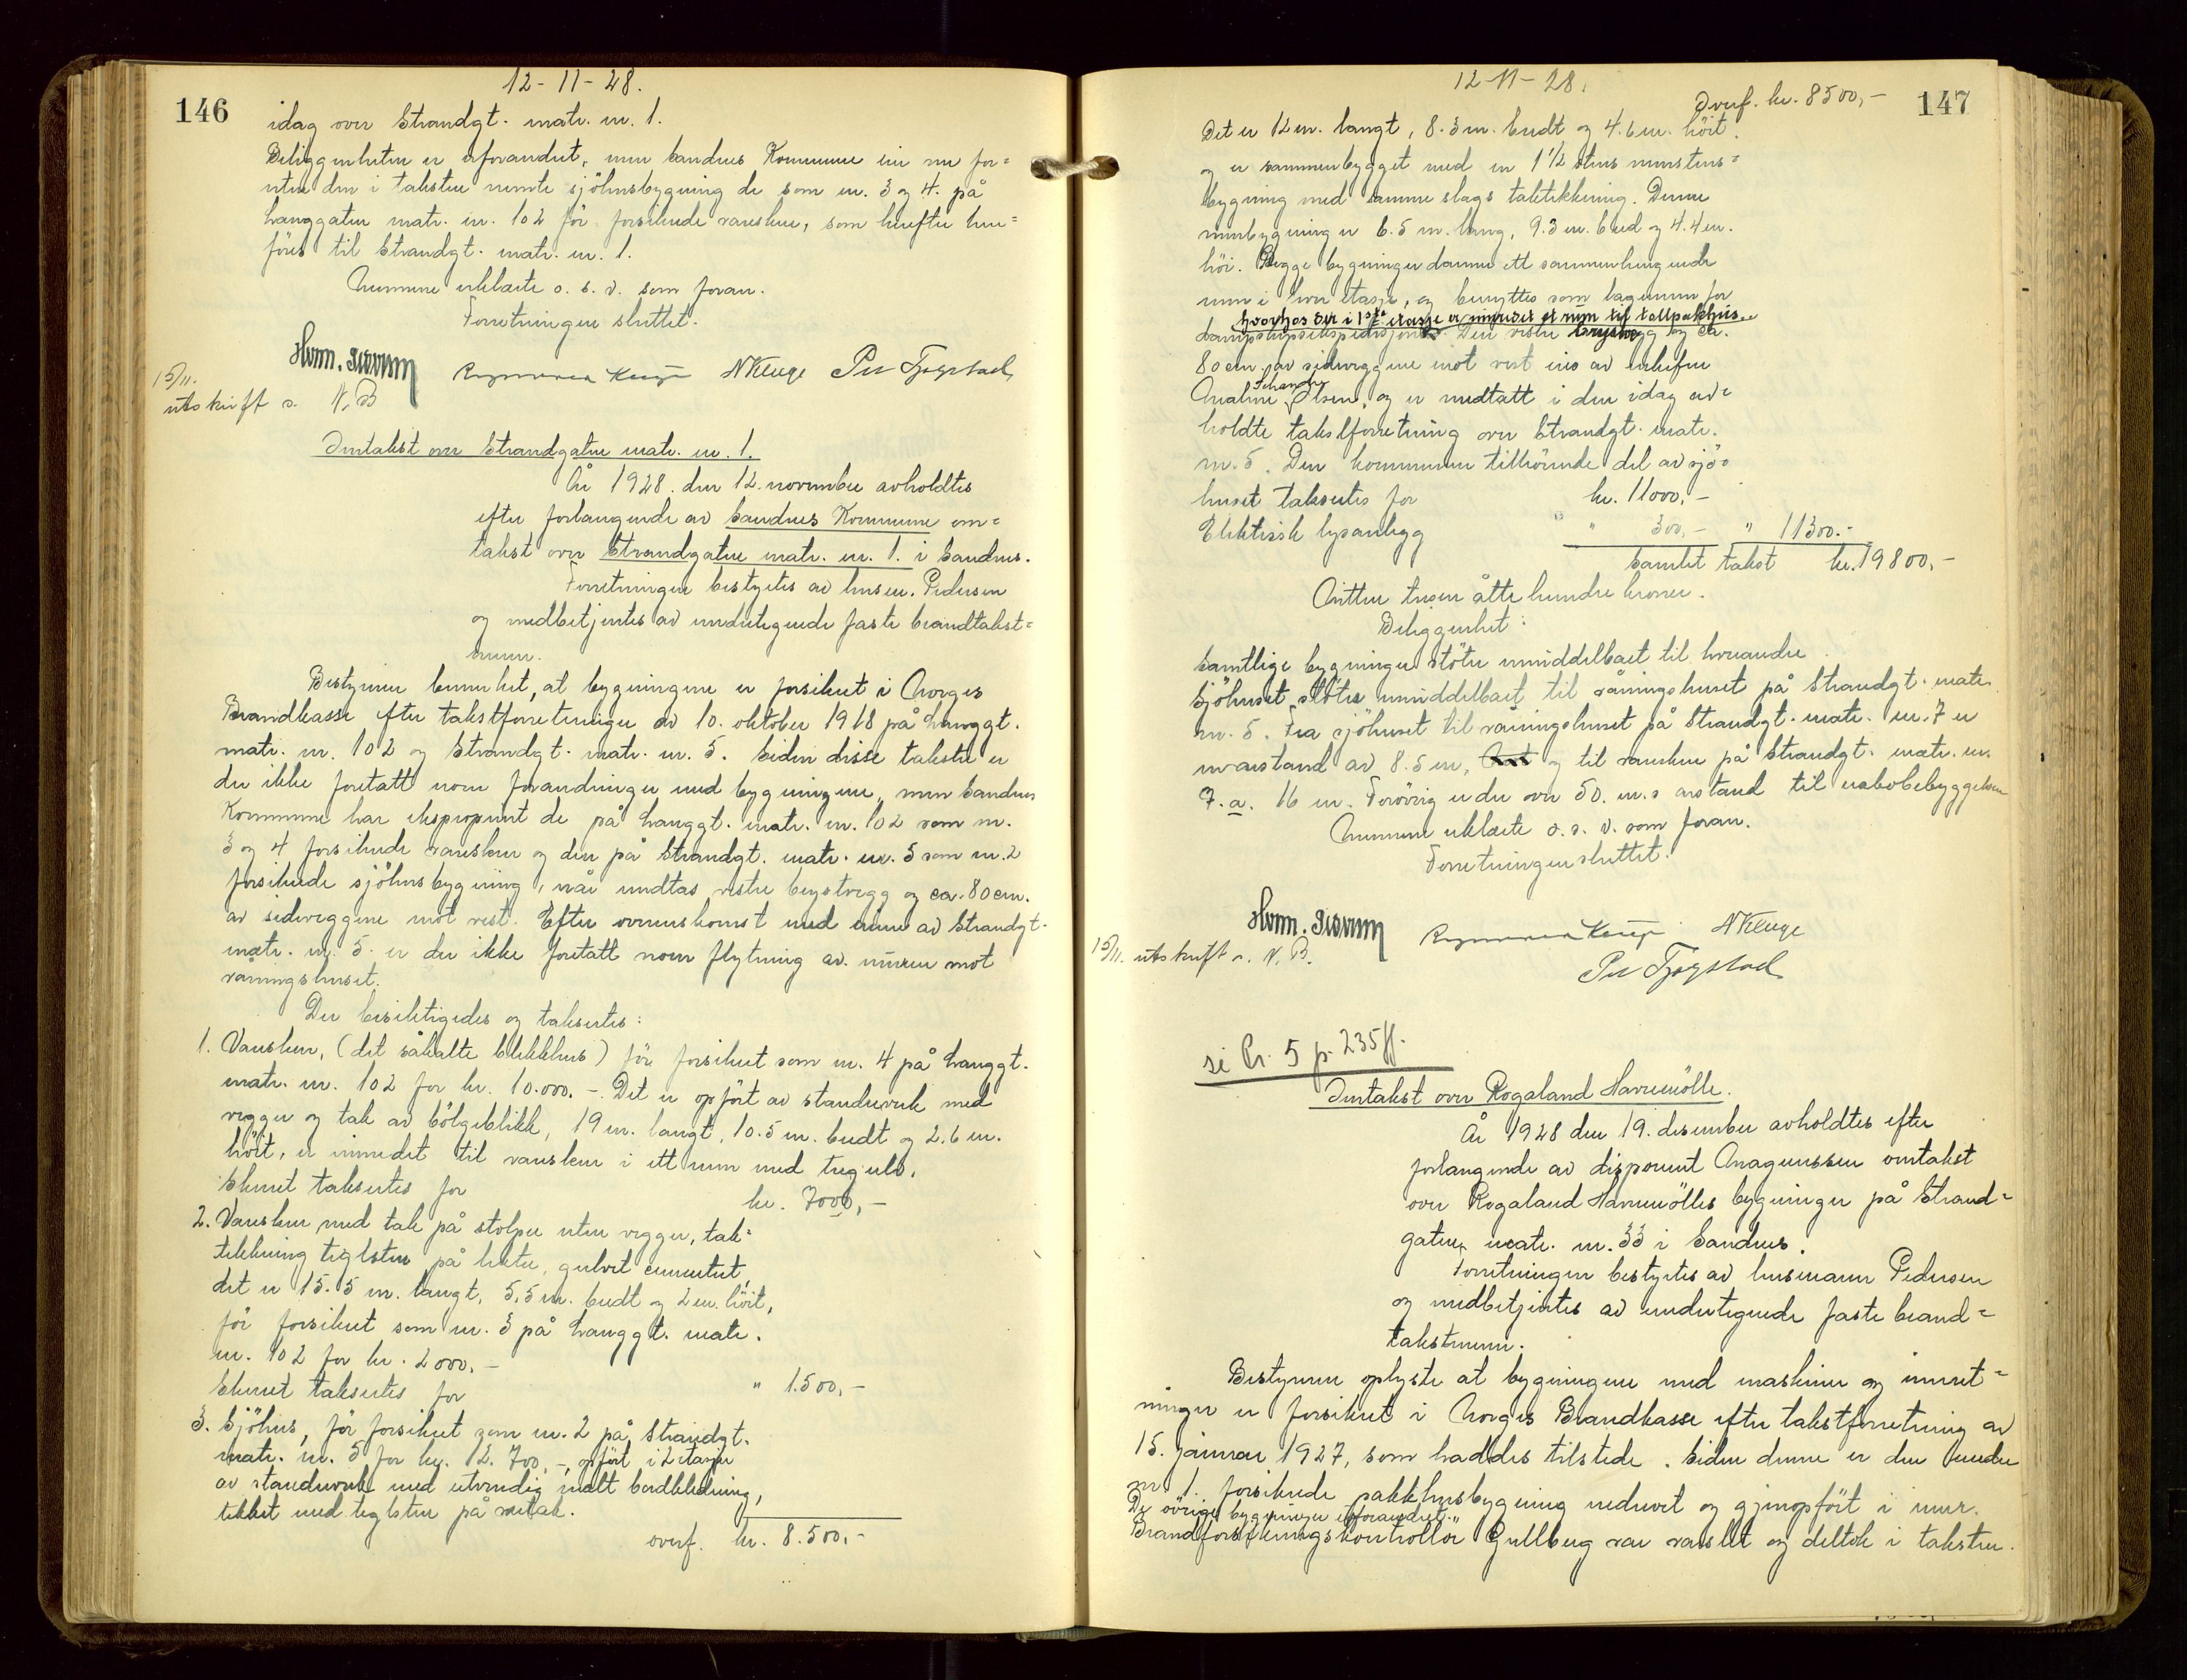 12-11-28.
146
idag over Strandgt. matr. nr. 1.
Beliggenheten er uforandret, men Sandnes Kommune eier nu for=
uten den i taksten nevnte sjöhusbygning de som nr. 3 og 4 på
Langgaten matr. nr. 102 för forsikrede vareskur, som herefter hen=
föres til Strandgt. matr. nr. 1.
Mennene erklærte o. s. v. som foran.
Forretningen sluttet.
N Kluge Per Tjogstad
15/11.
utskrift s. N. B
Omtakst over Strandgaten matr. nr. 1.
År 1928 den 12. november avholdtes
efter forlangende av Sandnes Kommune om=
takst over Strandgaten matr. nr. 1. i Sandnes.
Forretningen bestyrtes av lensm. Pedersen
og medbetjentes av undertegnede faste brandtakst=
menn.
Bestyreren bemerket, at bygningene er forsikret i Norges
Brandkasse efter takstforretninger av 10. oktober 1918 på Langgt.
matr. nr. 102 og Strandgt. matr. nr. 5. Siden disse takster er
der ikke foretatt noen forandringer med bygningene, men Sandnes
Kommune har ekspropriert de på Langgt. matr. nr. 102 som nr.
3 og 4 forsikrede vareskur og den på Strandgt. matr. nr. 5 som nr. 2
forsikrede sjöhusbygning, når undtas vestre brystvegg og ca. 80 cm.
av sideveggene mot vest. Efter overenskomst med eieren av Strandgt.
matr. nr. 5 er der ikke foretatt noen flytning av muren mot
våningshuset.
Der besiktigedes og taksertes:
1. Vareskur, (det såkalte blikkhus) för forsikret som nr. 4 på Langgt.
matr. nr. 102 for kr. 10.000.- Det er opfört av standerverk med
vegger og tak av bölgeblikk, 19 m. langt, 10.5 m. bredt og 2.6 m.
höit, er innredet til vareskur i ett rum med tregulv.
Skuret taksertes for kr. 7000,-
2. Vareskur med tak på stolper uten vegger, tak=
tekkning teglsten på lekter, gulvet cementert,
det er 15.5 m. langt, 5,5 m. bredt og 2 m. höit,
för forsikret som nr. 3 på Langgt. matr.
nr. 102 for kr. 2000,-
Skuret taksertes for " 1.500,-
3. Sjöhus, för forsikret som nr. 2 på Strandgt.
matr. nr. 5 for kr. 12.700,-, opfört i 2 etasjer
av standerverk med utvendig malt bordkledning,
tekket med teglsten på
overf. kr. 8.500,-
12-11-28.
Overf. kr. 8500,-
147
Det er 12 m. langt, 8.3 m. bredt og 4.6 m. höit.
og er sammenbygget med en 1 1/2 stens murstens=
bygning med samme slags taktekkning. Denne
murbygning er 6.5 m. lang, 9.3 m. bred og 4.4 m.
höi. Begge bygninger danner ett sammenhengende
rum i hver etasje, og benyttes som lagerrum for
hvorhos der i 1ste etasje er innredet et rum til tollpakkhus.
dampskipsekspedisjon. Den vestre brystvegg og ca.
80 cm. av sideveggene mot vest eies av enkefru
Schanche
Olsen, og er medtatt i den idag av=
holdte takstforretning over Strandgt. matr.
nr. 5. Den kommunen tilhörende del av sjö=
huset taksertes for kr. 11000,-
Elektrisk lysanlegg " " 300,- " 11300.-
Samlet takst kr. 19800,-
Nitten tusen åtte hundre kroner.
Beliggenhet:
Samtlige bygninger stöter umiddelbart til hverandre.
Sjöhuset stöter umiddelbart til våningshuset på Strandgt. matr.
nr. 5. Fra sjöhuset til våningshuset på Strandgt. matr. nr. 7 er
en avstand av 8.5 m, og til vareskur på Strandgt. matr. nr.
7.a. 16 m. Forövrig er der over 50. m.s avstand til nabobebyggelsen
Mennene erklærte o. s. v. som foran.
Forretningen sluttet.
N Kluge
15/11. utskrift s. N. B.
Per Tjogstad
se Pr. 5 p. 235 ff.
Omtakst over Rogaland Havremölle.
År 1928 den 19. desember avholdtes efter
forlangende av disponent Aragenssen omtakst
over Rogaland Havremölles bygninger på Strand=
gaten matr. nr. 33 i Sandnes.
Forretningen bestyrtes av lensmann Pedersen
og medbetjentes av undertegnede faste brand=
takstmenn.
Bestyreren oplyste at bygningene med maskiner og innret=
ninger er forsikret i Norges Brandkasse efter takstforretning av
15. januar 1927, som haddes tilstede. Siden denne er den under
nr 1. forsikrede pakkhusbygning nedrevet og gjenopfört i mur.
De övrige bygninger uforandret.
Brandforsikringskontrollör Gullberg var varslet og deltok i taksten.